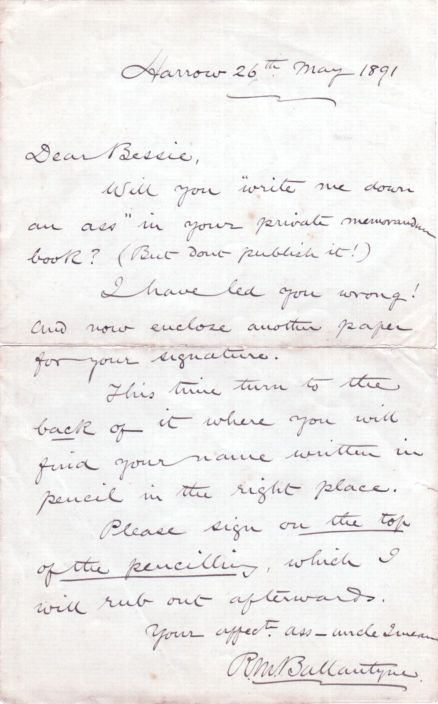 Harrow 26th May 1891
Dear Bessie,
Will you "write me down
an ass" in your private memorandum
book? (But dont publish it!)
I have led you wrong!
and now enclose another paper
for your signature.
This time turn to the
back of it where you will
find your name written in
pencil in the right place.
Please sign on the top
of the pencilling, which I
will rub out afterwards.
Your affect. ass – uncle I mean
R.M. Ballantyne.